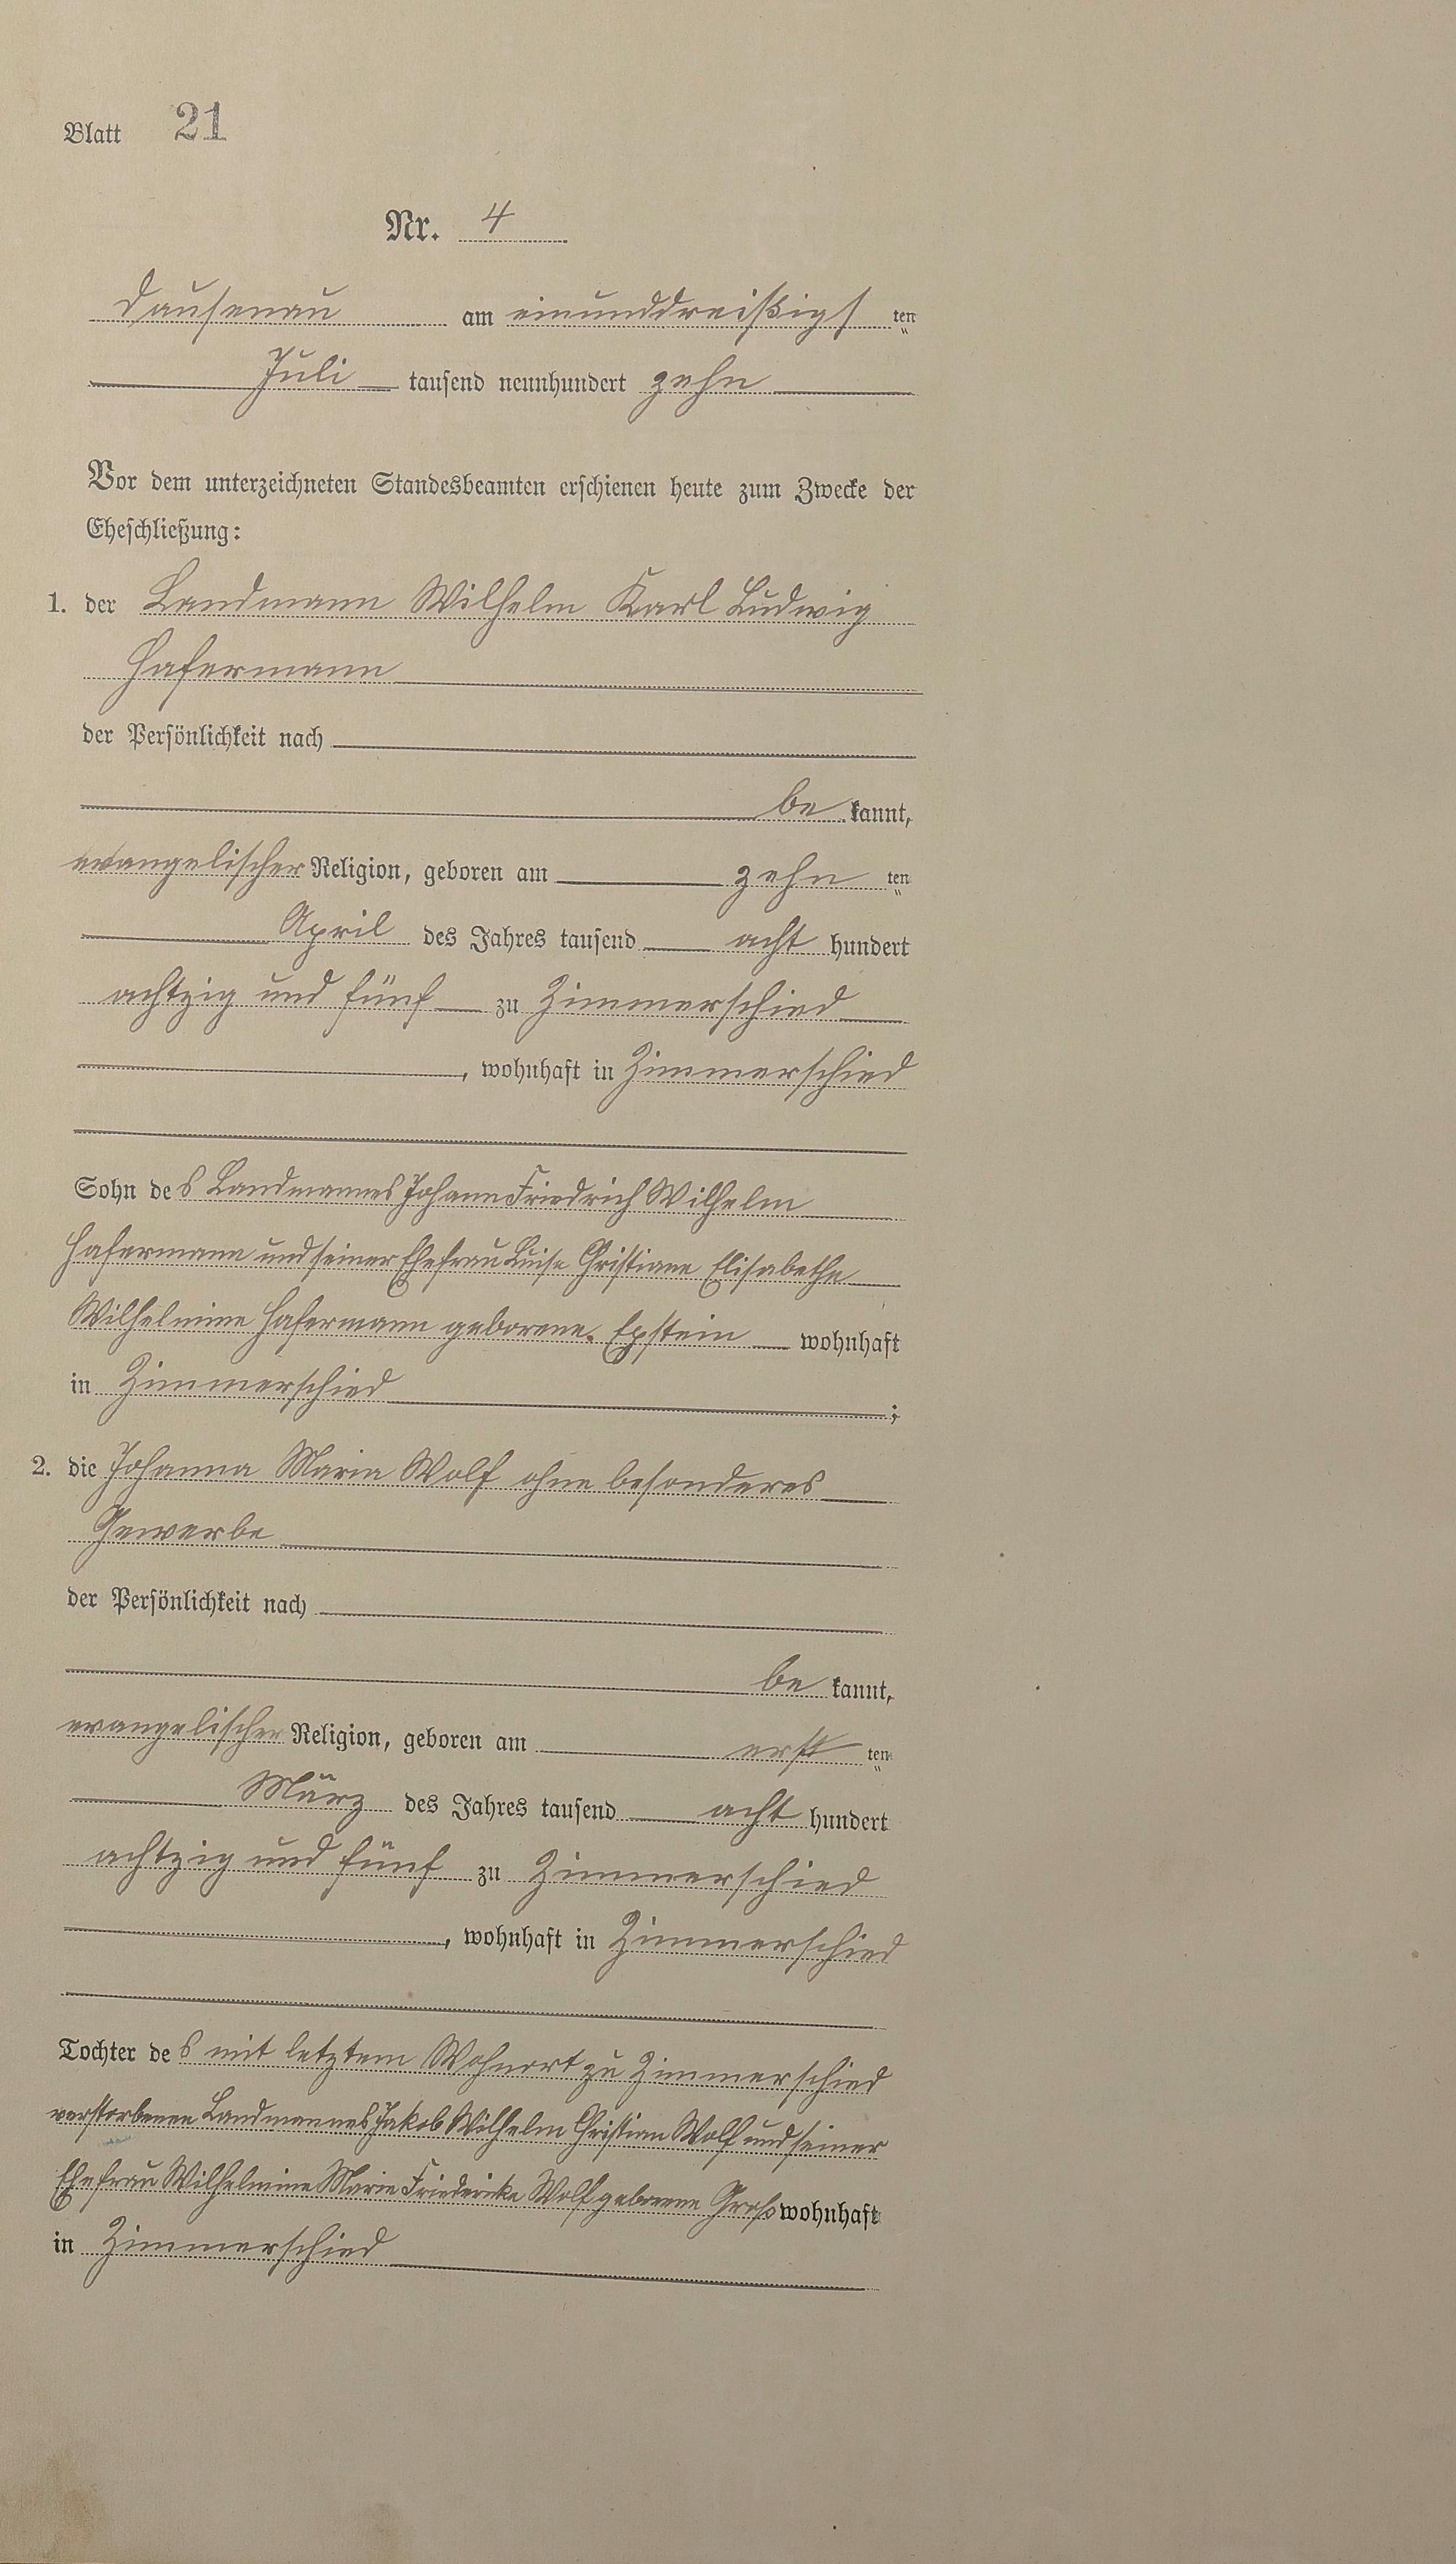 Blatt 21
Nr. 4
Dausenau am einunddreißigst ten
Juli tausend neunhundert zehn
Vor dem unterzeichneten Standesbeamten erschienen heute zum Zwecke der
Eheschließung:
1. der Landmann Wilhelm Karl Ludwig
Hafermann
der Persönlichkeit nach
be kannt,
evangelischer Religion, geboren am zehn ten
April des Jahres tausend acht hundert
achtzig und fünf zu Zimmerschied
, wohnhaft in Zimmerschied
Sohn des Landmannes Johann Friedrich Wilhelm
Hafermann und seiner Ehefrau Luise Christiane Elisabethe
Wilhelmine Hafermann geborene Epstein wohnhaft
in Zimmerschied ;
2. die Johanna Maria Wolf ohne besonderes
Gewerbe
der Persönlichkeit nach
be kannt,
evangelischer Religion, geboren am erst ten
März des Jahres tausend acht hundert
achtzig und fünf zu Zimmerschied
, wohnhaft in Zimmerschied
Tochter des mit letztem Wohnort zu Zimmerschied
verstorbenen Landmannes Jakob Wilhelm Christian Wolf und seiner
Ehefrau Wilhelmine Marie Friedericke Wolf geborene Groß wohnhaft
in Zimmerschied